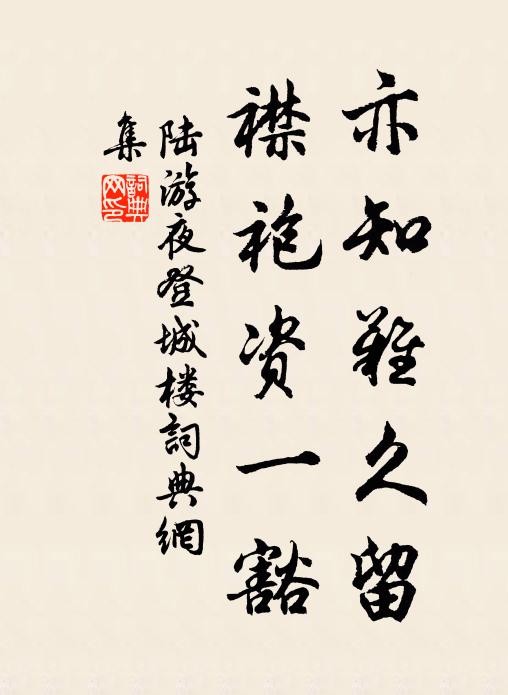 亦知難久留
襟袍资一豁
陆游夜登城楼詞典網
集
詞典网印